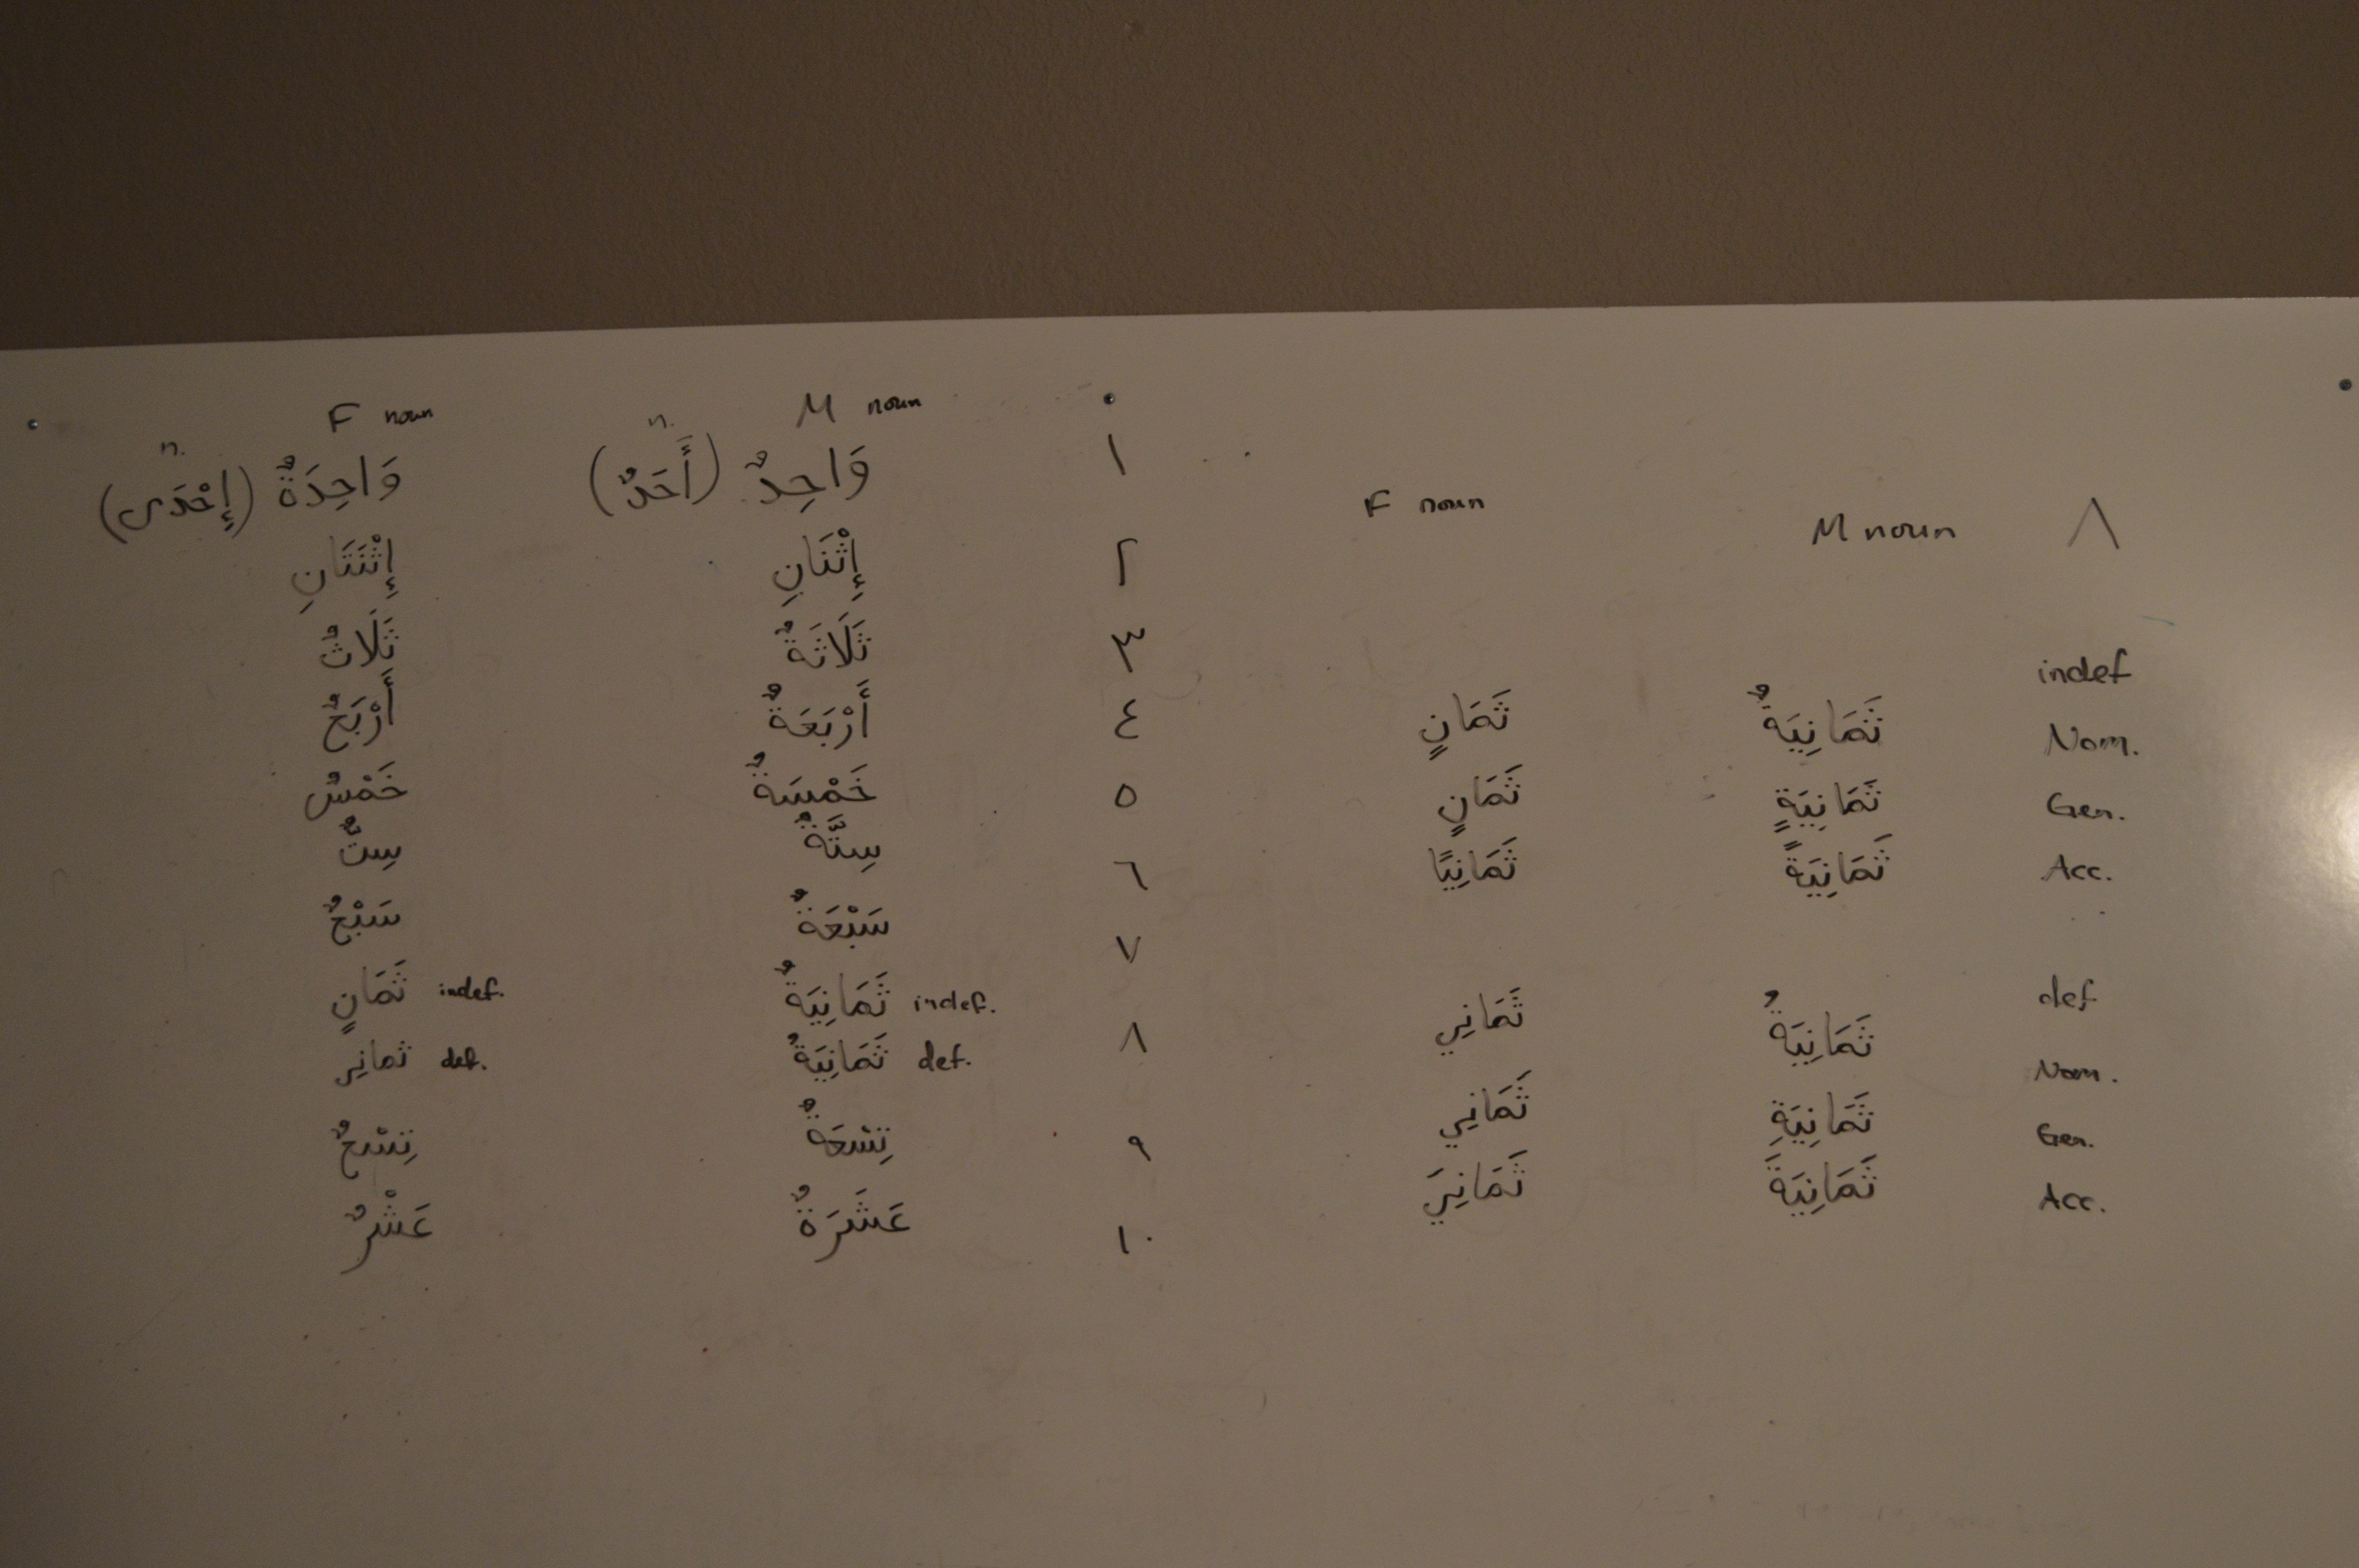 F noun M noun ٠
وَاحِدَةٌ (إِحْدَى) n. وَاحِدٌ (أَحَدٌ) n. ١
إِثْنَتَانِ إِثْنَانِ ٢
ثَلَاثٌ ثَلَاثَةٌ ٣
أَرْبَعٌ أَرْبَعَةٌ ٤
خَمْسٌ خَمْسَةٌ ٥
سِتٌّ سِتَّةٌ ٦
سَبْعٌ سَبْعَةٌ ٧
ثَمَانٍ indef. ثَمَانِيَةٌ indef. ٨
ثمانِي def. ثَمَانِيَةُ def.
تِسْعٌ تِسْعَةٌ ٩
عَشْرٌ عَشَرَةٌ ١٠
F noun M noun ٨
indef
ثَمَانٍ ثَمَانِيَةٌ Nom.
ثَمَانٍ ثَمَانِيَةٍ Gen.
ثَمَانِيًا ثَمَانِيَةً Acc.
def
ثَمَانِي ثَمَانِيَةُ Nom.
ثَمَانِي ثَمَانِيَةِ Gen.
ثَمَانِيَ ثَمَانِيَةَ Acc.